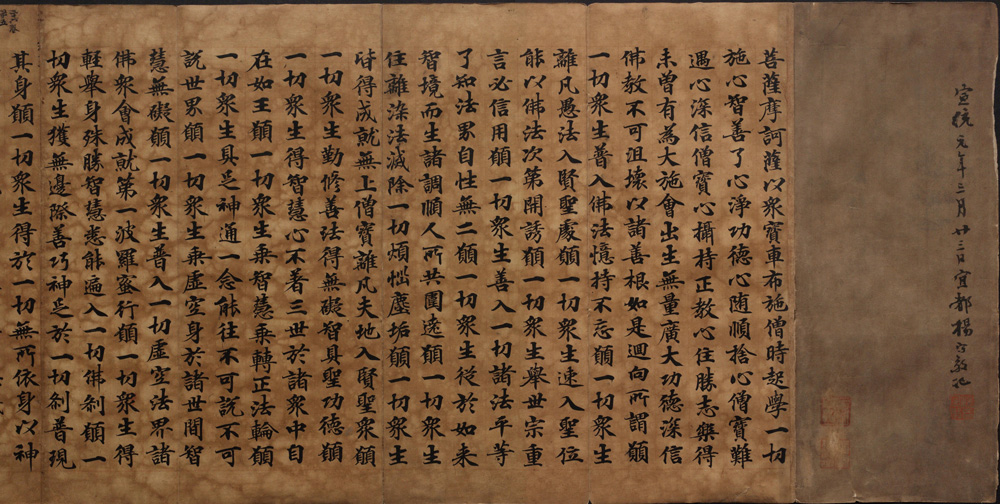 宣統元年三月廿三日宜都楊守敬記
菩薩摩訶薩以衆寶車布施僧時起學一切
施心智善了心淨功德心隨順捨心僧寶難
遇心深信僧寶心攝持正教心住勝志樂得
未曾有為大施會出生無量廣大功德深信
佛教不可沮壞以諸善根如是迴向所謂願
一切衆生普入佛法憶持不忘願一切衆生
離凡愚法入賢聖處願一切衆生速入聖位
能以佛法次第開誘願一切衆生舉世宗重
言必信用願一切衆生善入一切諸法平等
了知法界自性無二願一切衆生從於如来
智境而生諸調順人所共圍遶願一切衆生
住離染法滅除一切煩惱塵垢願一切衆生
皆得成就無上僧寶離凡夫地入賢聖衆願
一切衆生勤修善法得無礙智具聖功德願
一切衆生得智慧心不著三世於諸衆中自
在如王願一切衆生乗智慧乗轉正法輪願
一切衆生具足神通一念能往不可說不可
說世界願一切衆生乗虛空身於諸世間智
慧無礙願一切衆生普入一切虛空法界諸
佛衆會成就第一波羅蜜行願一切衆生得
輕舉身殊勝智慧悉能遍入一切佛剎願一
切衆生獲無邊際善巧神足於一切剎普現
其身願一切衆生得於一切無所依身以神